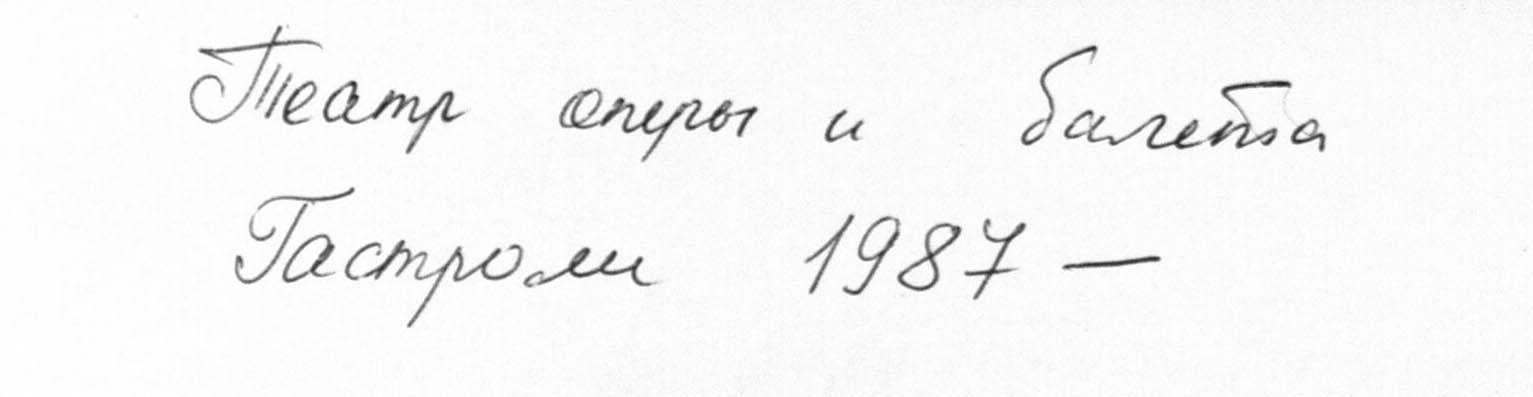 Театр оперы и балета
Гастроли 1987 —